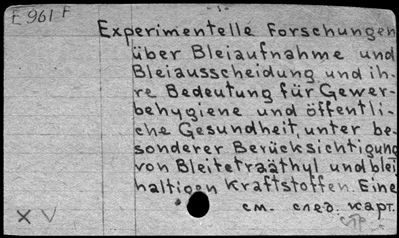 E 961 F
- 1 -
Experimentelle Forschungen
über Bleiaufnahme und
Bleiausscheidung und ih-
re Bedeutung für Gewer-
behygiene und öffentli-
che Gesundheit, unter be-
sonderer Berücksichtigung
von Bleitetraäthyl und blei
haltigen Kraftstoffen. Eine
см. след. карт.
стр.
XV